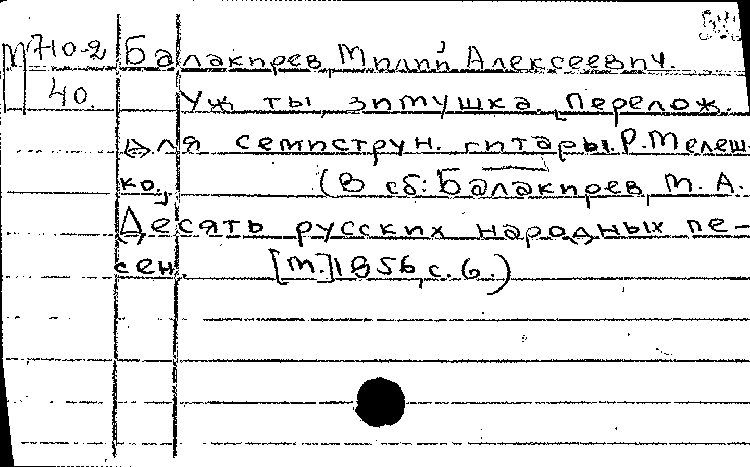 М 710-2 Балакирев, Милий Алексеевич.
40. Уж ты, зимушка. Перелож.
для семиструн. гитары Р. Мелеш-
ко. (В сб: Балакирев, М. А.
Десять русских народных пе-
сен. [М.] 1956, с. 6.)